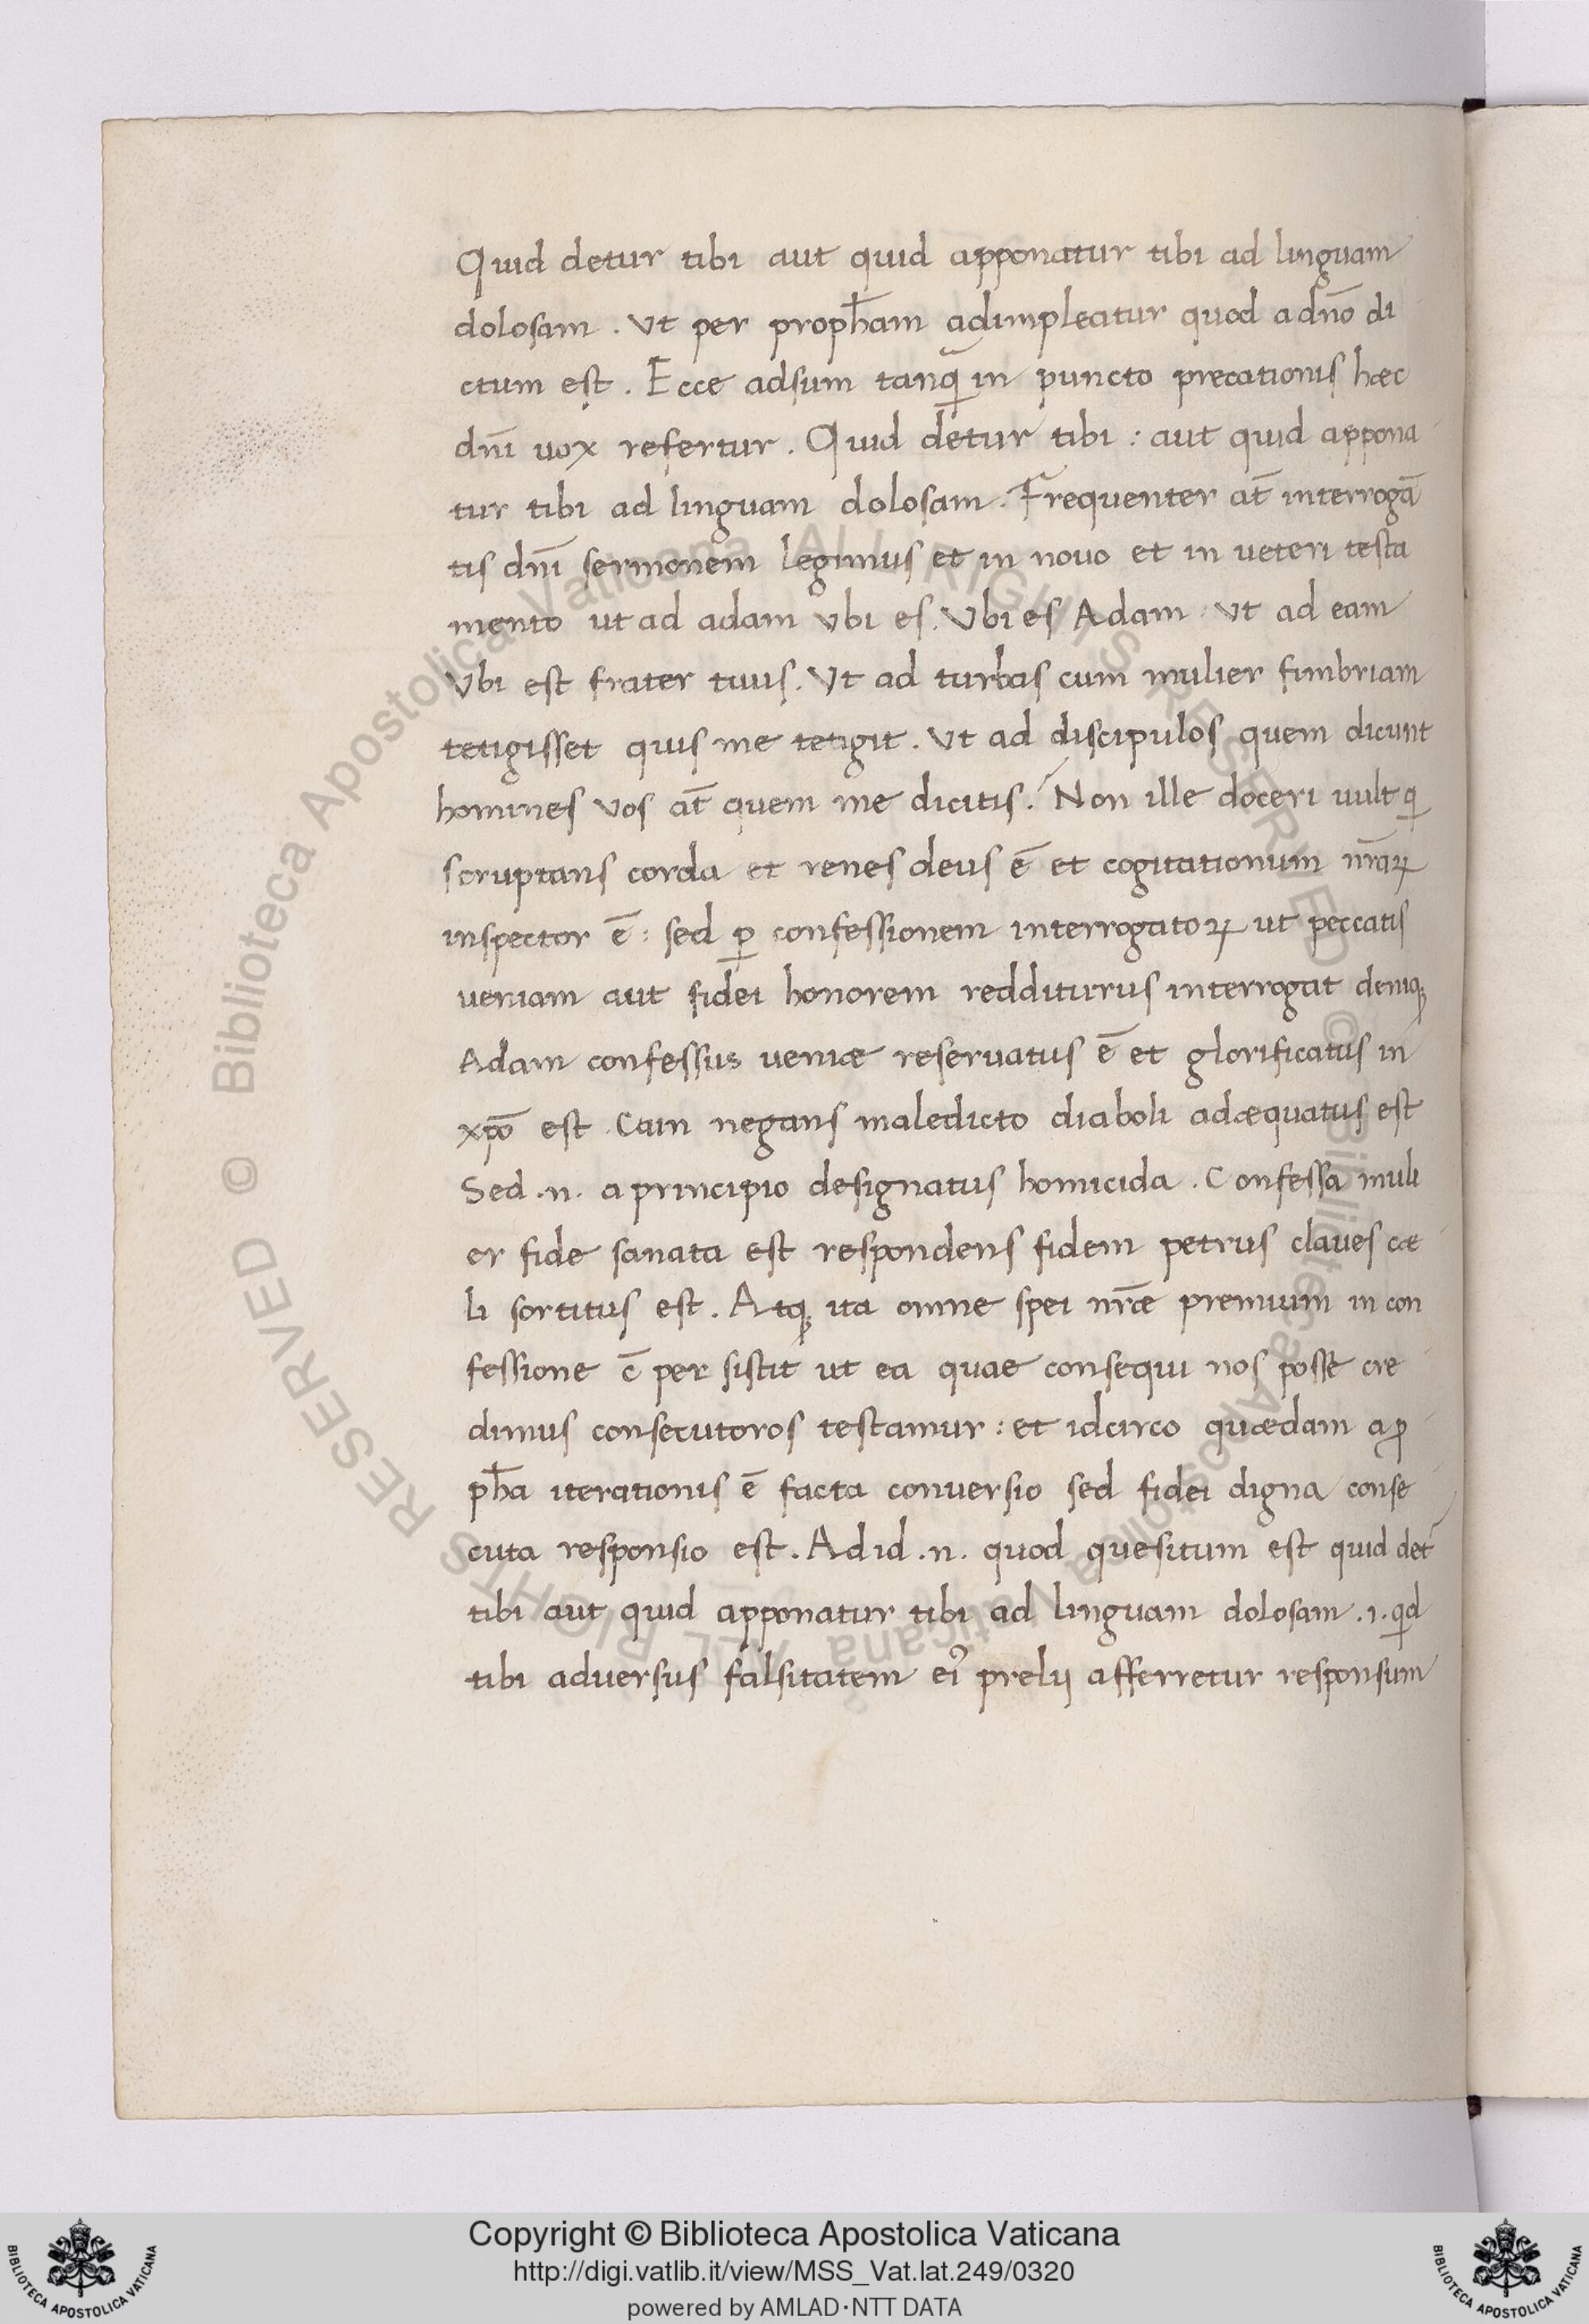 Quid detur tibi aut quid apponatur tibi ad linguam
dolosam . Vt per proph̅am adimpleatur quod a dn̅o di
ctum est . Ecce adsum tanq̅ in puncto precationis hæc
dn̅i uox refertur . Quid detur tibi : aut quid appona
tur tibi ad linguam dolosam . Frequenter at̅ interroga̅
tis dn̅i sermonem legimus et in nouo et in ueteri testa
mento ut ad adam vbi es . Vbi es Adam . Vt ad eam
Vbi est frater tuus . Vt ad turbas cum mulier fimbriam
tetigisset quis me tetigit . Vt ad discipulos quem dicunt
homines vos at̅ quem me dicitis . Non ille doceri uult q
scruptans corda et renes deus e̅ et cogitationum nr̅aꝝ
inspector e̅ : sed ꝑ confessionem interrogatoꝝ ut peccatis
ueniam aut fidei honorem redditurus interrogat deniq;
Adam confessus ueniæ reseruatus e̅ et glorificatus in
xp̅o est . Cain negans maledicto diaboli adæquatus est
Sed .n. a principio designatus homicida . Confessa muli
er fide sanata est respondens fidem petrus claues cæ
li sortitus est . Atq; ita omne spei nr̅æ premium in con
fessione e̅ per sistit ut ea quae consequi nos posse cre
dimus consecutoros testamur : et idcirco quædam a ꝓ
ph̅a iterationis e̅ facta conuersio sed fidei digna conse
cuta responsio est . Ad id .n. quod quesitum est quid det̅
tibi aut quid apponatur tibi ad linguam dolosam .i. qd
tibi aduersus falsitatem ei᾽ prelij afferretur responsum
Copyright © Biblioteca Apostolica Vaticana
http://digi.vatlib.it/view/MSS_Vat.lat.249/0320
powered by AMLAD·NTT DATA
BIBLIOTECA APOSTOLICA VATICANA
BIBLIOTECA APOSTOLICA VATICANA
© Biblioteca Apostolica Vaticana ALL RIGHTS RESERVED © Biblioteca Apostolica Vaticana ALL RIGHTS RESERVED